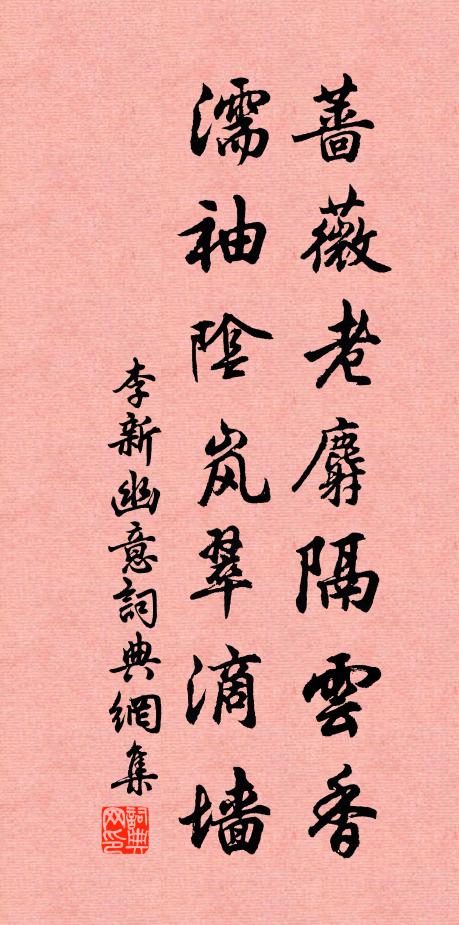 蔷薇老麝隔雲香
濡袖陰岚翠滴墙
李新幽意詞典網集
詞典网印